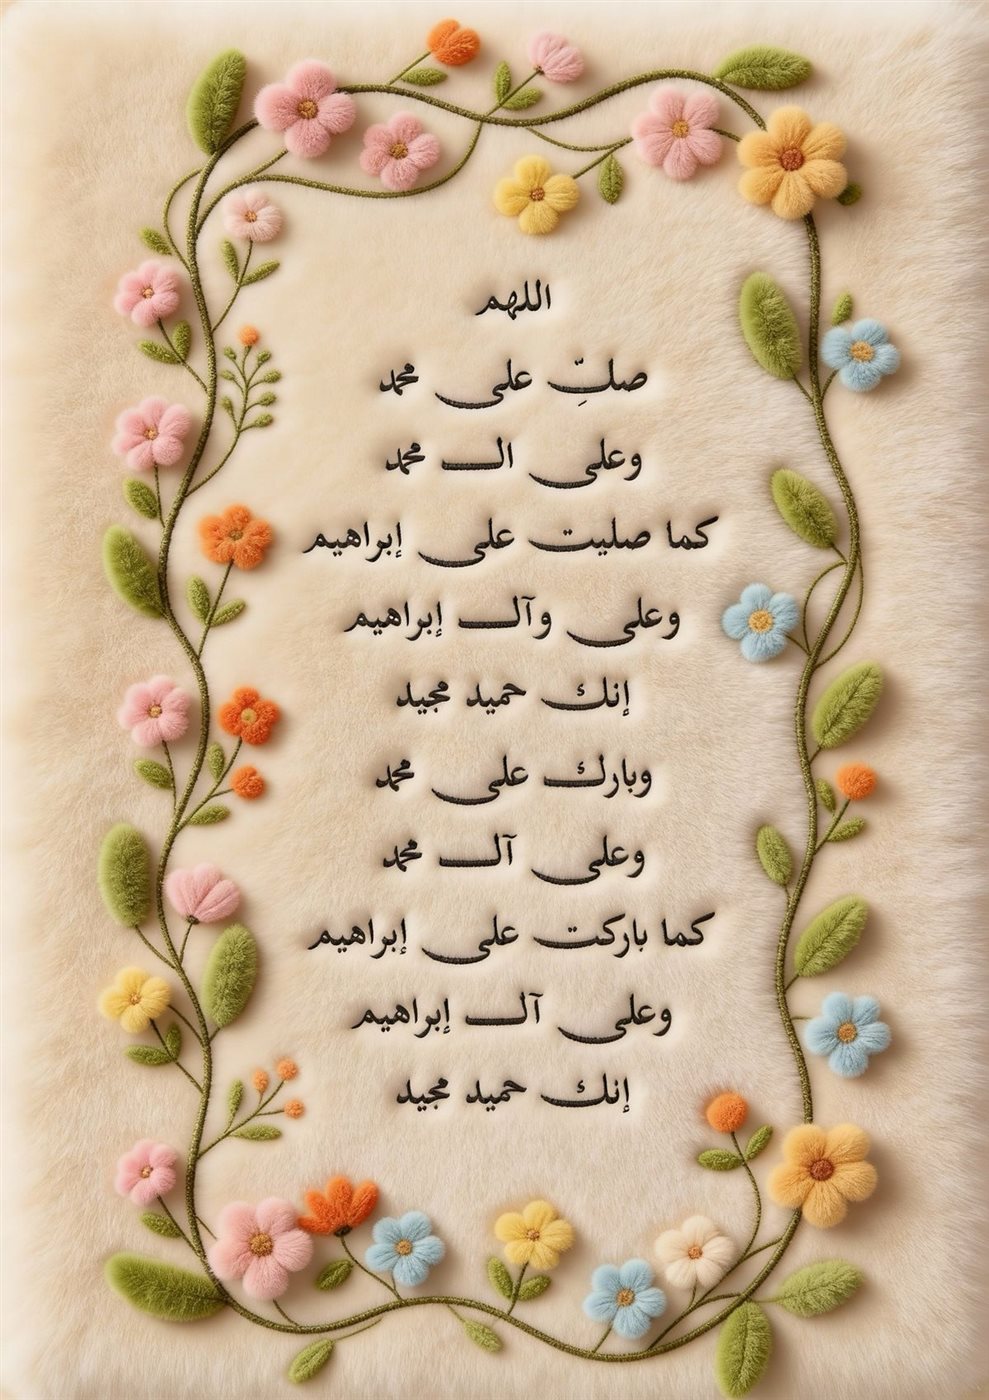 اللهم
صلِّ على محمد
وعلى ال محمد
كما صليت على إبراهيم
وعلى وآل إبراهيم
إنك حميد مجيد
وبارك على محمد
وعلى آل محمد
كما باركت على إبراهيم
وعلى آل إبراهيم
إنك حميد مجيد